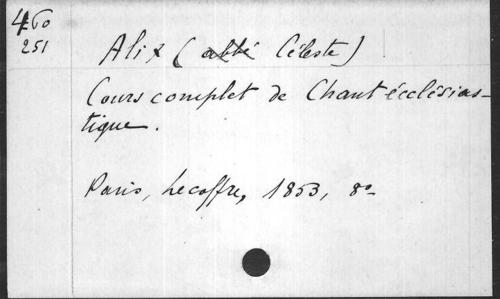 460
251
Alix (abbé Céleste)
Cours complet de Chant écclésias-
tique.
Paris, Lecoffre, 1853, 8º